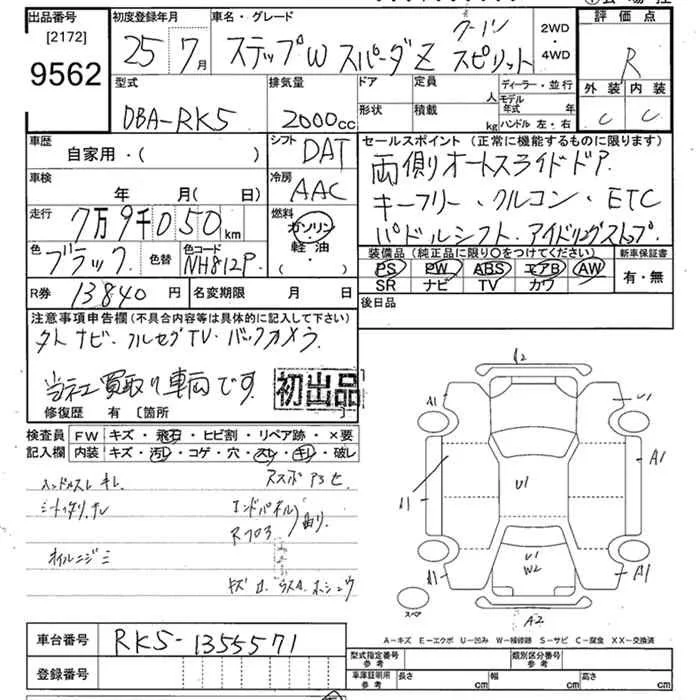 出品番号
[2172]
9562
初度登録年月
25年 7月
車名・グレード
クールスピリット
ステップW スパーダZ
2WD
・
4WD
評価点
R
外装 内装
C C
型式
DBA-RK5
排気量
2000cc
ドア
形状
定員
人
積載
kg
ディーラー・並行
モデル年式 年
ハンドル 左・右
車歴
自家用・( )
シフト
DAT
セールスポイント(正常に機能するものに限ります)
両側オートスライドドア.
キーフリー・クルコン・ETC
パドルシフト.アイドリングストップ.
車検
年 月(日)
冷房
AAC
走行
7万9千050km
燃料
ガソリン
軽油
・
色
ブラック
色替
色コード
NH812P
装備品(純正品に限り○をつけてください)
PS PW ABS エアB AW
SR ナビ TV カワ
新車保証書
有・無
R券
13840円
名変期限 月 日
後日品
注意事項申告欄(不具合内容等は具体的に記入して下さい)
外ナビ・フルセグTV・バックカメラ.
当社買取り車両です.
初出品
修復歴 有〔箇所 〕
検査員
記入欄
FW キズ・飛石・ヒビ割・リペア跡・×要
内装 キズ・汚レ・コゲ・穴・スレ・キレ・破レ
ハンドルスレ キレ
エンドパネル
曲り
オイルニジミ
A1
U1
U1
A1
A1
U1
W2
A1
A1
A2
スペア
A-キズ E-エクボ U-凹み W-補修跡 S-サビ C-腐食 XX-交換済
車台番号
RK5-1355571
登録番号
型式指定番号
参考
類別区分番号
参考
車庫証明用
参考
長さ cm
幅 cm
高さ cm